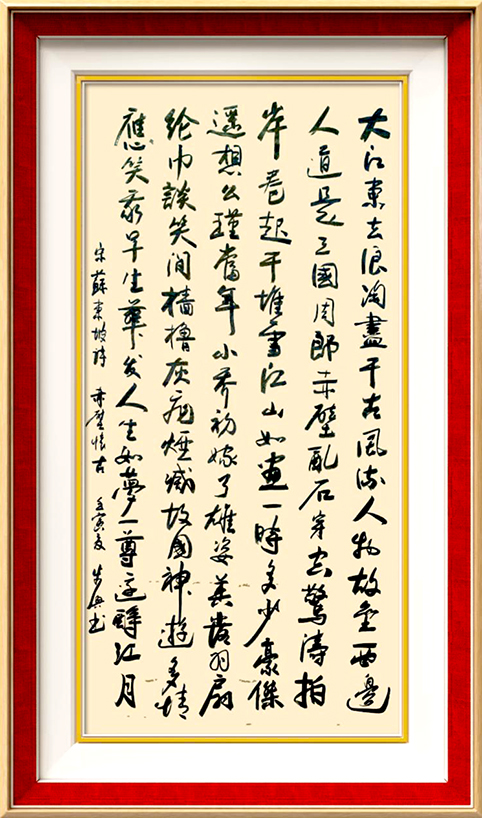 大江東去浪淘盡千古風流人物故壘西邊
人道是三國周郎赤壁亂石穿空驚濤拍
岸卷起千堆雪江山如畫一時多少豪傑
遥想公瑾當年小喬初嫁了雄姿英發羽扇
綸巾談笑間檣櫓灰飛煙滅故國神遊多情
應笑我早生華发人生如夢一尊還酹江月
宋蘇東坡詩 赤壁懷古 壬寅夏 书